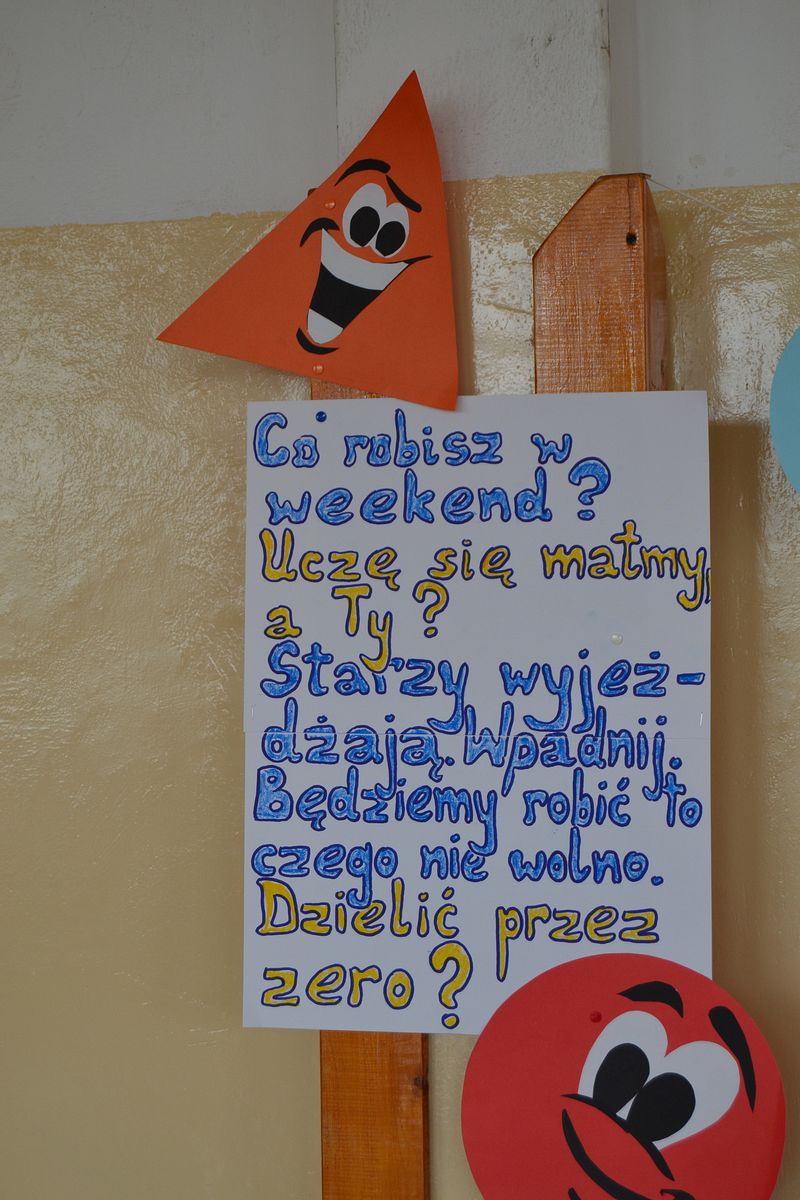 Co robisz w
weekend?
Uczę się matmy,
a Ty?
Starzy wyjeż-
dżają. Wpadnij.
Będziemy robić to
czego nie wolno.
Dzielić przez
zero?